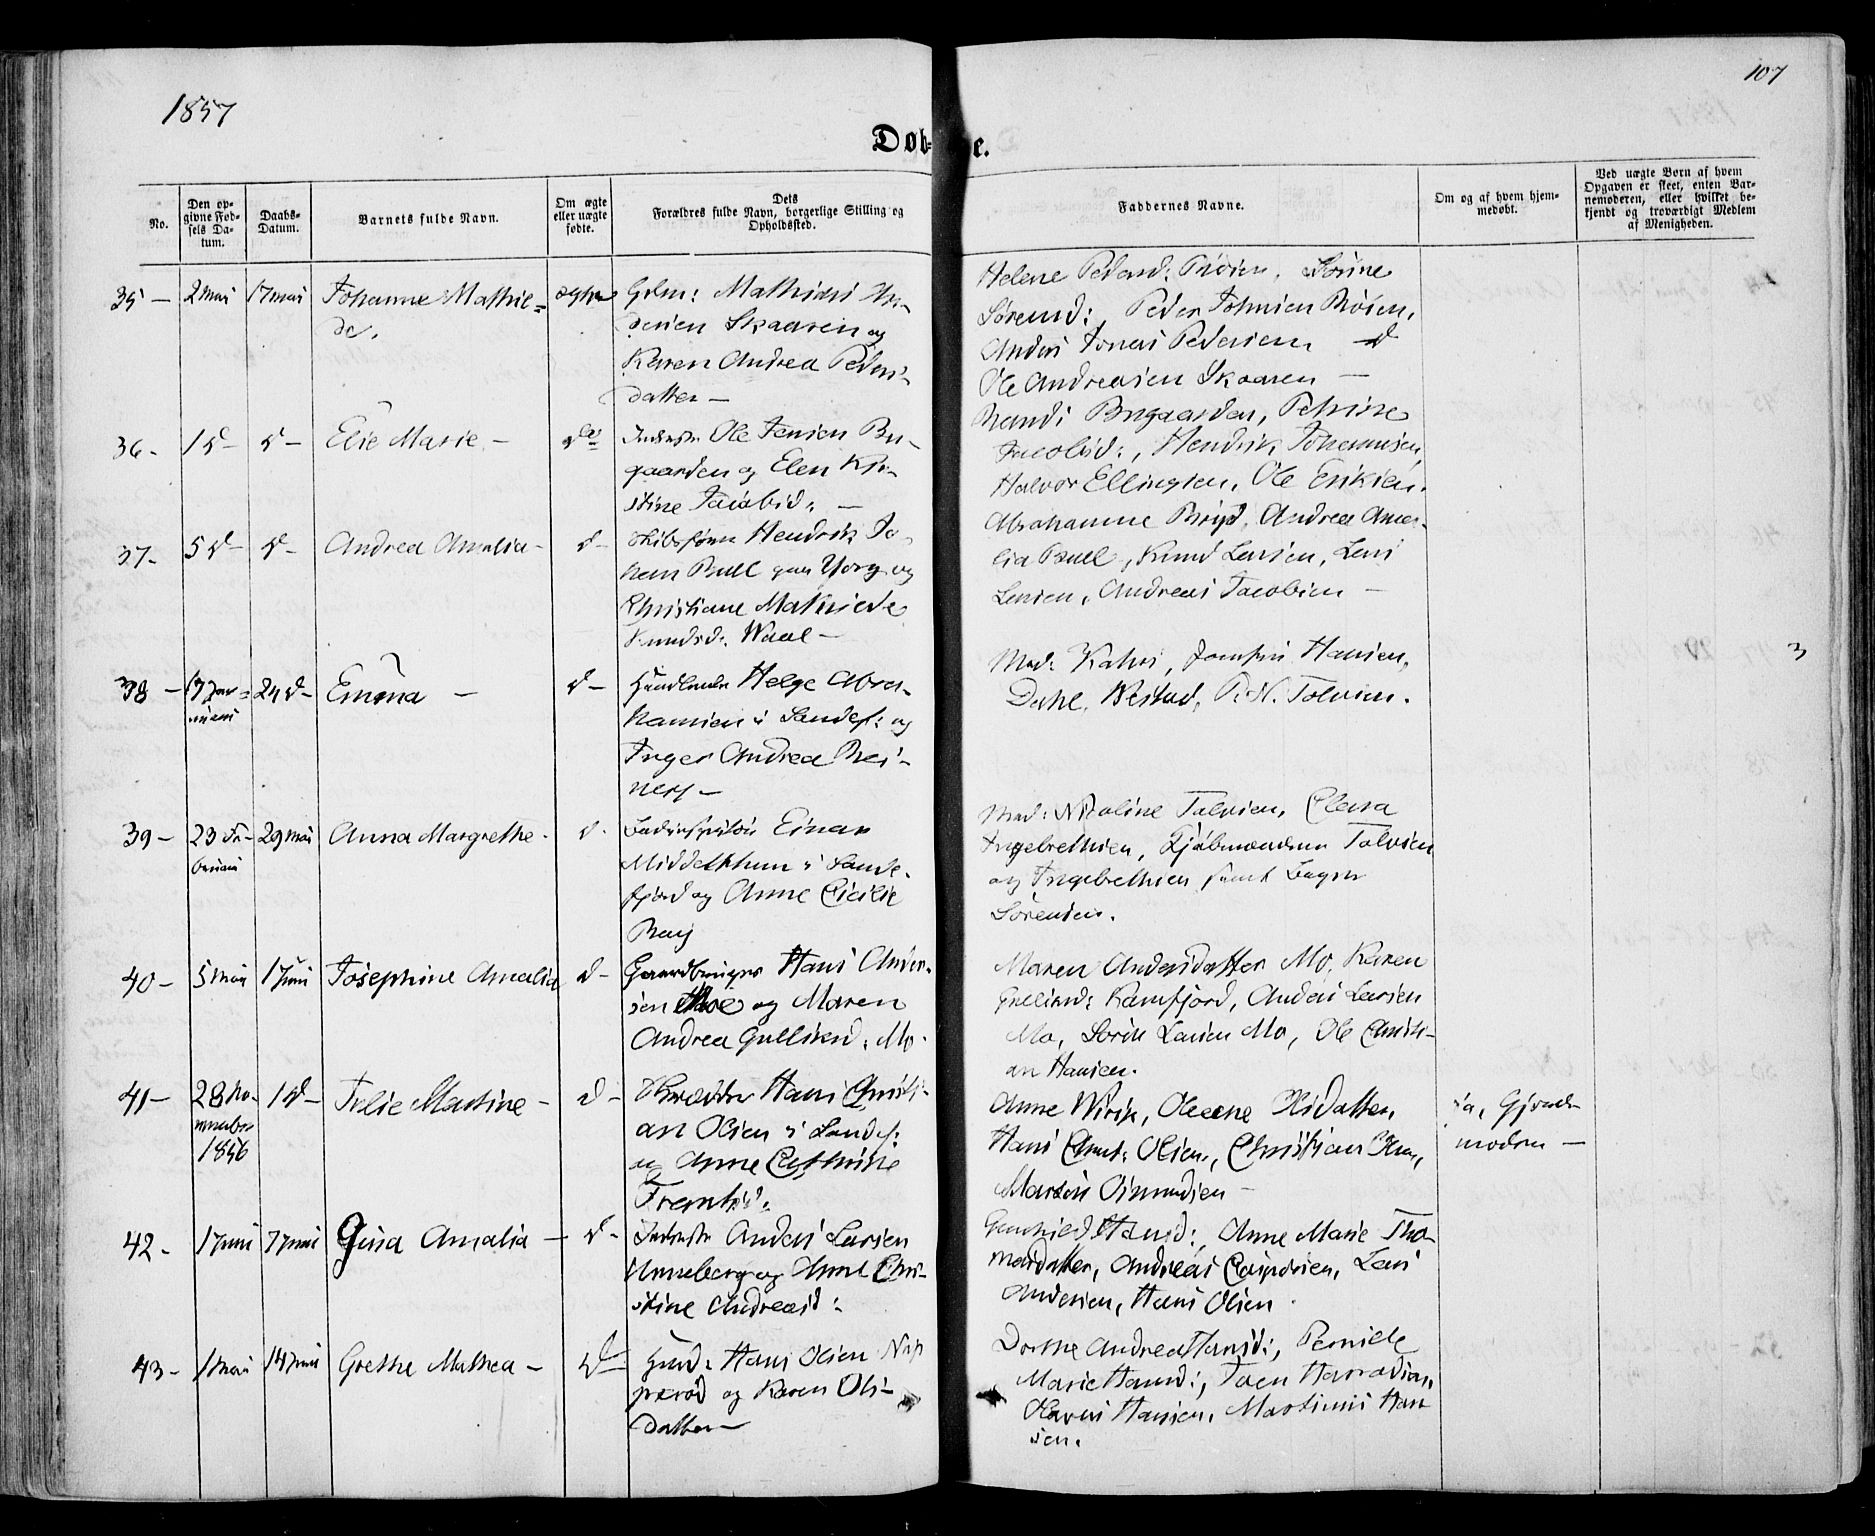 1857
107
Døb-
e.
No.
Den op-
givne Fød-
sels Da-
tum.
Daabs-
Datum.
Barnets fulde Navn.
Om ægte
eller uægte
fødte.
Dets
Forældres fulde Navn, borgerlige Stilling og
Opholdssted.
Faddernes Navne.
Om og af hvem hjem-
medøbt.
Ved uægte Børn af hvem
Opgaven er skeet, enten Bar-
nemoderen, eller hvilket be-
kjendt og troværdigt Medlem
af Menigheden.
35 - 2 Mai 17 Mai Johanne Mathil-
de.
ægte
Mathias An-
dersen Skaaren og
Karen Andrea Peders-
datter -
Helene Pedersd: Sørine
Sørensd: Peder Johnsen
Anders Jonas Pedersen
Ole Andreasen Skaaren -
36 - 1 d - d - Elie Marie -
Ole Jensen Bu-
gaarden og Elen Kri-
stine Jacobsd: -
Randi Bugaarden, Petrine
Jacobsd:, Hendrik Johannesen,
Halvor Ellingsen, Ole Eriksen.
37 - 5 d - d - Andrea Amalia - d -
Skibsfører Hendrik Jo-
han Bull paa Yorg og
Christiane Mathilde
Knudsd: Waal -
Abrahamine Andrea Ama-
lia Bull, Knud Larsen, Lars
Larsen, Andreas Jacobsen -
38 - 17 Jan-
uari
24 d - Emma - d -
Handlende Helge Abra-
hamsen i Sandef: og
Inger Andrea Rei-
ners -
Mad: Jomfru Hansen,
Dahl, P. N. Tolvsen.
39 - 23 Fe-
bruari
29 Mai Anna Margrethe - d -
Einar
Middelthun i Sande-
fjord og Anne Cicilie
Mad: Nicoline Tolvsen, Clara
Ingebrethsen, Kjøbmændene Tolvsen
og Ingebrethsen samt
Sørensen.
40 - 5 Mai 1 Juni Josephine Amalia d -
Gaardbruger Hans Ander-
sen Moe og Maren
Andrea Gulliksd: Mo -
Maren Andersdatter Mo, Karen
Gulliksd: Kamfjord, Anders Larsen
Mo, Søren Larsen Mo, Ole Christi-
an Hansen.
41 - 28 No-
vember
1856
1 d - Julie Martine - d -
Skrædder Hans Christi-
an Olsen i Sandef:
og Anne Cathrine
Anne Wirik, Oleane Olsdatter,
Hans Christ: Olsen, Christian
Martin Osmundsen -
ja, Gjorde-
moderen -
42 - 1 Juni 7 Juni Gina Amalia - d -
Anders Larsen
Unneberg og Anne Chri-
stine Andreasd:
Gunhild Hansd:, Anne Marie Tho-
masdatter, Andreas Caspersen, Lars
Andersen, Hans Olsen.
43 - 1 Mai 14 Juni Grethe Mathea - d -
Hans Olsen Nap
perød og Karen Ols-
datter -
Dorthe Andrea Hansd:, Pernille
Marie Hansd:,
Hansen, Martinus Han
sen.
3